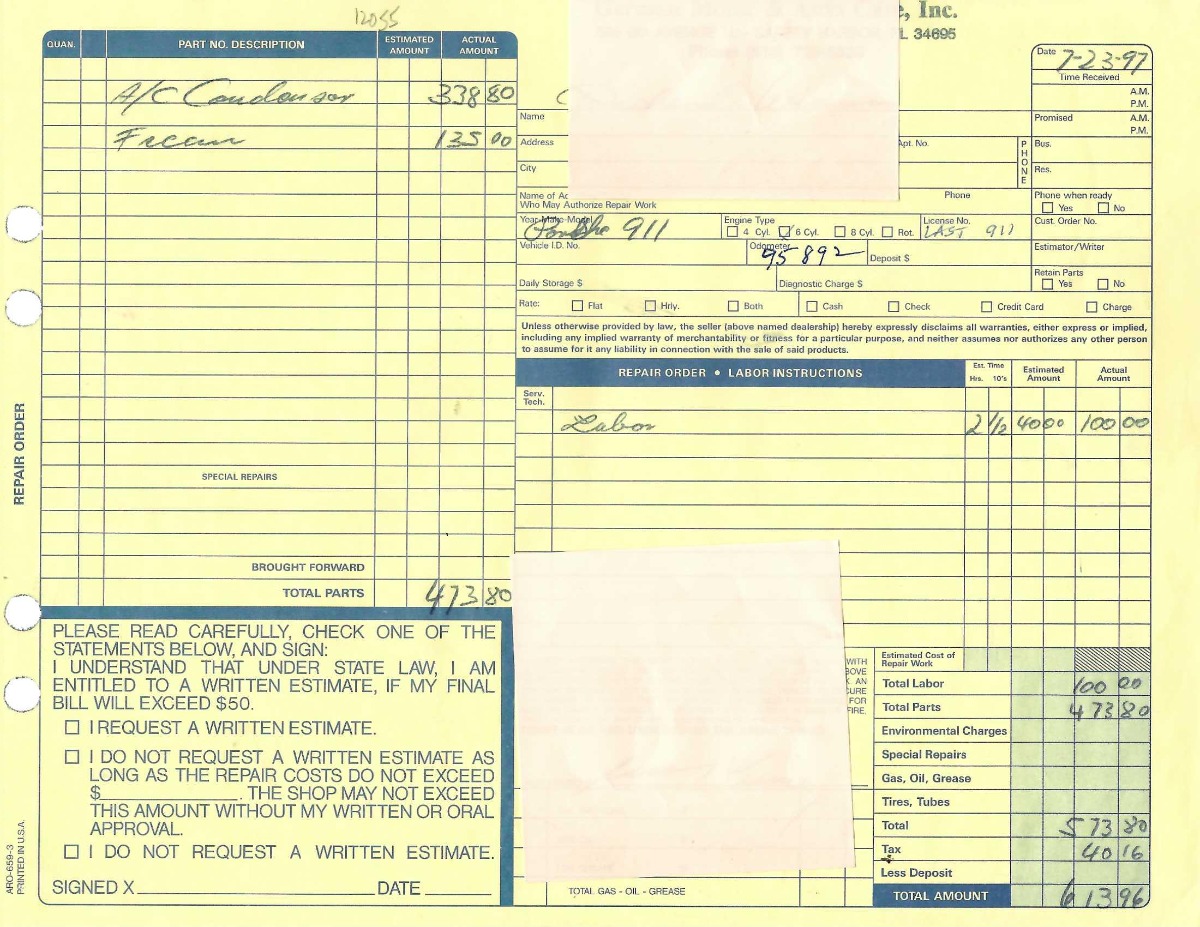 12055
QUAN. PART NO. DESCRIPTION ESTIMATED AMOUNT ACTUAL AMOUNT
A/C Condensor 338 80
Freon 135 00
SPECIAL REPAIRS
BROUGHT FORWARD
TOTAL PARTS 473 80
REPAIR ORDER
PLEASE READ CAREFULLY, CHECK ONE OF THE
STATEMENTS BELOW, AND SIGN:
I UNDERSTAND THAT UNDER STATE LAW, I AM
ENTITLED TO A WRITTEN ESTIMATE, IF MY FINAL
BILL WILL EXCEED $50.
I REQUEST A WRITTEN ESTIMATE.
I DO NOT REQUEST A WRITTEN ESTIMATE AS
LONG AS THE REPAIR COSTS DO NOT EXCEED
$ . THE SHOP MAY NOT EXCEED
THIS AMOUNT WITHOUT MY WRITTEN OR ORAL
APPROVAL.
I DO NOT REQUEST A WRITTEN ESTIMATE.
SIGNED X DATE
ARO-659-3
PRINTED IN U.S.A.
, Inc.
L 34695
Date 7-23-97
Time Received
A.M.
P.M.
Promised A.M.
P.M.
Name
Address Apt. No. PHONE Bus.
City Res.
Name of
Who May Authorize Repair Work Phone Phone when ready
Yes No
Year-Make-Model Porsche 911 Engine Type 4 Cyl. 6 Cyl. 8 Cyl. Rot. License No. LAST 911 Cust. Order No.
Vehicle I.D. No. Odometer 95892 Deposit $ Estimator/Writer
Daily Storage $ Diagnostic Charge $ Retain Parts
Yes No
Rate: Flat Hrly. Both Cash Check Credit Card Charge
Unless otherwise provided by law, the seller (above named dealership) hereby expressly disclaims all warranties, either express or implied,
including any implied warranty of merchantability or fitness for a particular purpose, and neither assumes nor authorizes any other person
to assume for it any liability in connection with the sale of said products.
REPAIR ORDER • LABOR INSTRUCTIONS Est. Time Hrs. 10's Estimated Amount Actual Amount
Serv. Tech.
Labor 2 1/2 40 00 100 00
WITH
OVE
AN
URE
FOR
FIRE.
Estimated Cost of
Repair Work
Total Labor 100 00
Total Parts 473 80
Environmental Charges
Special Repairs
Gas, Oil, Grease
Tires, Tubes
Total 573 80
Tax 40 16
Less Deposit
TOTAL GAS - OIL - GREASE
TOTAL AMOUNT 613 96